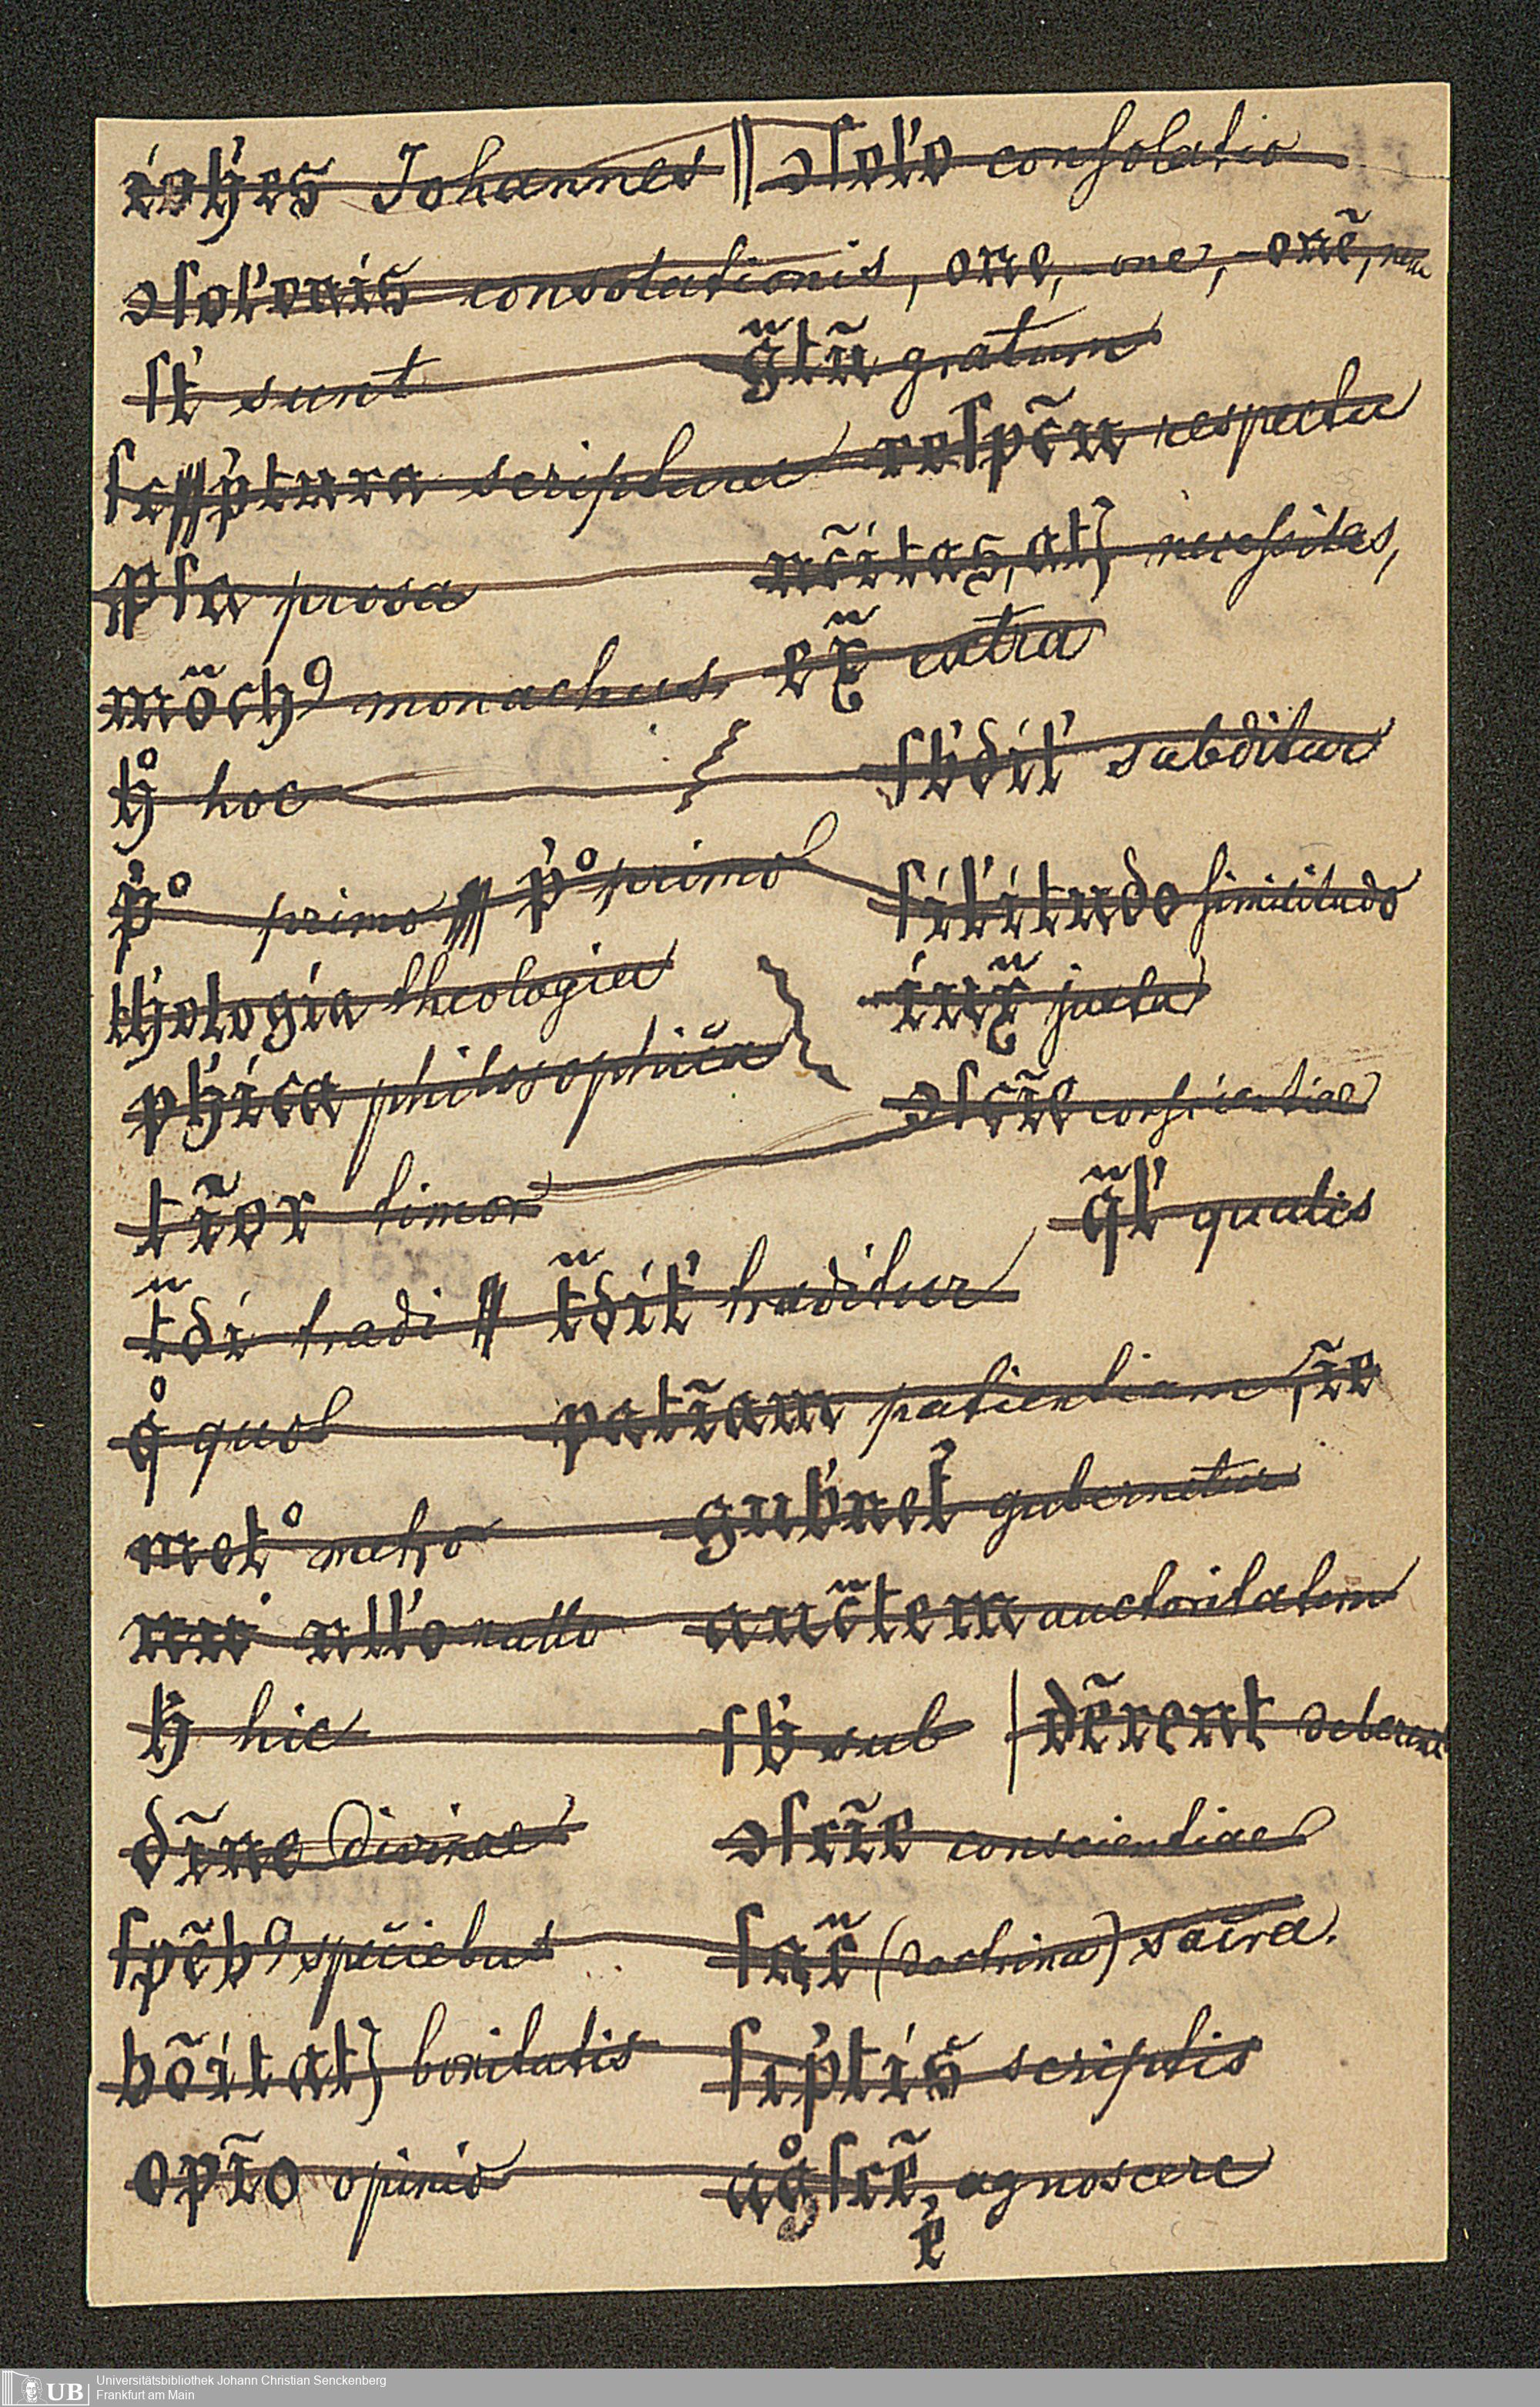 iohes Johannes || ɔſol'o conſolatio
ɔſol'onis consolationis, one, -one, -onẽ,
ſt' sunt g̃tũ gratum
ſcptura scripturae reſpc̃u respectu
pſa prosa nc̃itas, at necessitas,
mõchꝯ monachus, ex̃ extra
h̊ hoc ſb'dit' subditur
p̊ primo p̊ primo ſil'itudo similitudo
th'ologia theologia iux̃ juxta
ph'ica philosophica ɔſciẽ consientiae
tĩor timor q̃l' qualis
t̃di tradi t̃dit' traditur
q̊ quo patĩam patientiam, ĩe
met° metro gub'net' gubernetur
nll'o nullo auc̃tem auctoritatem
h' hic ſb' sub | dẽrent deberent
dĩne divinae ɔſcĩe conscientiae
ſpẽbꝯ speciebus ſac̃ (doctrina) sacra.
bõitat bonitatis ſcptis scriptis
opĩo opinio ag̊ſcẽ, agnoscere
e'
UB Universitätsbibliothek Johann Christian Senckenberg
Frankfurt am Main